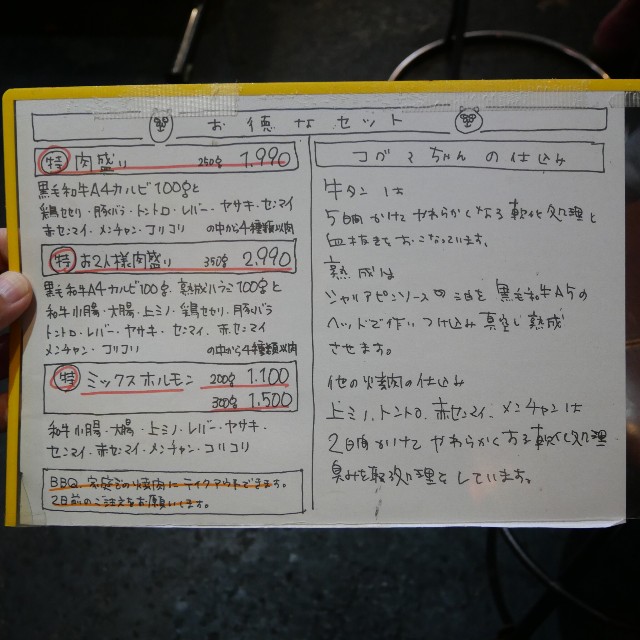 お徳なセット
特 肉盛り 250g 1.990
黒毛和牛A4カルビ100gと
鶏せせり・豚バラ・トントロ・レバー・ヤサキ・センマイ
赤センマイ・メンチャン・コリコリ の中から4種類以内
特 お2人様肉盛り 350g 2.990
黒毛和牛A4カルビ100g、熟成ハラミ100gと
和牛小腸・大腸・上ミノ・鶏せせり・豚バラ
トントロ・レバー・ヤサキ・センマイ・赤センマイ
メンチャン・コリコリ の中から4種類以内
特 ミックスホルモン 200g 1.100
300g 1.500
和牛小腸・大腸・上ミノ・レバー・ヤサキ・
センマイ・赤センマイ・メンチャン・コリコリ
BBQ、家庭での焼肉にテイクアウトできます。
2日前のご注文をお願いします。
コグマちゃんの仕込み
牛タンは
5日間かけてやわらかくなる軟化処理と
血抜きをおこなっています。
熟成は
シャリアピンソースの油を黒毛和牛A5の
ヘッドで作りつけ込み真空し熟成
させます。
他の焼肉の仕込み
上ミノ、トントロ、赤センマイ、メンチャンは
2日間かけてやわらかくなる軟化処理
臭みを取る処理をしています。